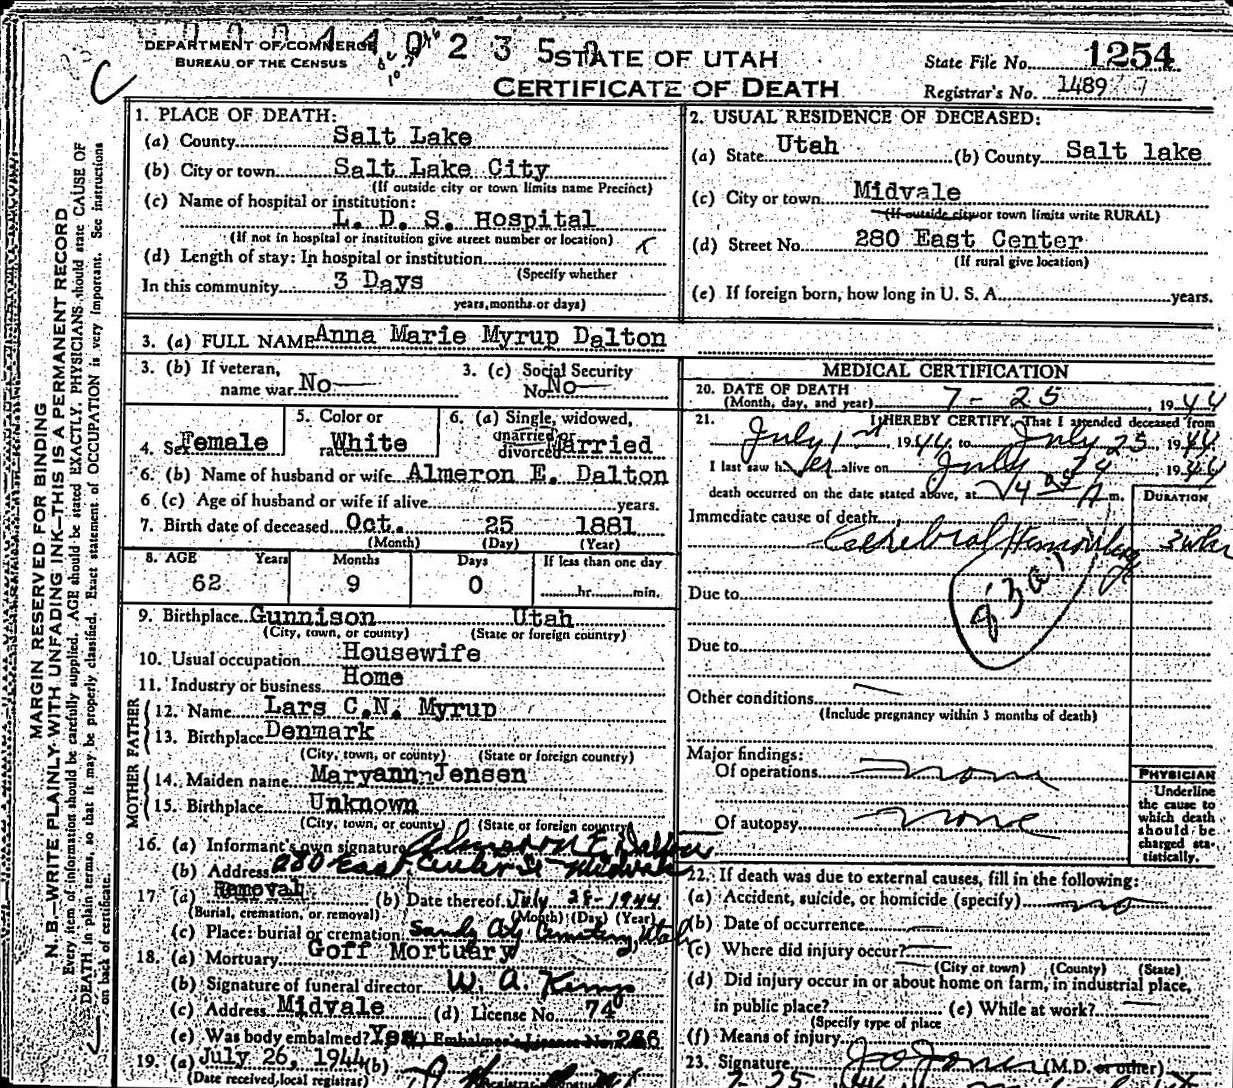 DEPARTMENT OF COMMERCE
BUREAU OF THE CENSUS
STATE OF UTAH
CERTIFICATE OF DEATH
State File No. 1254
Registrar's No. 1489
MARGIN RESERVED FOR BINDING
N. B.—WRITE PLAINLY WITH UNFADING INK—THIS IS A PERMANENT RECORD
Every item of information should be carefully supplied. AGE should be stated EXACTLY. PHYSICIANS should state CAUSE OF
DEATH in plain terms, so that it may be properly classified. Exact statement of OCCUPATION is very important. See instructions
on back of certificate.
1. PLACE OF DEATH:
(a) County Salt Lake
(b) City or town Salt Lake City
(If outside city or town limits name Precinct)
(c) Name of hospital or institution:
L. D. S. Hospital
(If not in hospital or institution give street number or location)
(d) Length of stay: In hospital or institution
(Specify whether
In this community 3 Days
years, months or days)
2. USUAL RESIDENCE OF DECEASED:
(a) State Utah (b) County Salt lake
(c) City or town Midvale
(If outside city or town limits write RURAL)
(d) Street No. 280 East Center
(If rural give location)
(e) If foreign born, how long in U. S. A. years.
3. (a) FULL NAME Anna Marie Myrup Dalton
3. (b) If veteran, name war No
3. (c) Social Security No. No
4. Sex Female
5. Color or race White
6. (a) Single, widowed, married or divorced Married
6. (b) Name of husband or wife Almeron E. Dalton
6 (c) Age of husband or wife if alive years.
7. Birth date of deceased Oct. 25 1881
(Month) (Day) (Year)
8. AGE Years Months Days If less than one day
62 9 0 hr. min.
9. Birthplace Gunnison Utah
(City, town, or county) (State or foreign country)
10. Usual occupation Housewife
11. Industry or business Home
FATHER
12. Name Lars C.N. Myrup
13. Birthplace Denmark
(City, town, or county) (State or foreign country)
MOTHER
14. Maiden name Maryann Jensen
15. Birthplace Unknown
(City, town, or county) (State or foreign country)
16. (a) Informant's own signature Almeron E Dalton
(b) Address 280 East Center St Midvale
17 (a) Removal (b) Date thereof July 28-1944
(Burial, cremation, or removal) (Month) (Day) (Year)
(c) Place: burial or cremation Sandy City Cemetery, Utah
18. (a) Mortuary Goff Mortuary
(b) Signature of funeral director W. A. Kemp
(c) Address Midvale (d) License No. 74
(e) Was body embalmed? Yes Embalmer's License No. 266
19. (a) July 26, 1944 (b)
(Date received local registrar)
MEDICAL CERTIFICATION
20. DATE OF DEATH
(Month, day, and year) 7-25 1944
21. I HEREBY CERTIFY, That I attended deceased from
July 1st 1944 to July 25 1944
I last saw her alive on July 24 1944
death occurred on the date stated above, at m.
DURATION
Immediate cause of death
Cerebral Hemorrhage
Due to
Due to
Other conditions
(Include pregnancy within 3 months of death)
Major findings:
Of operations none
Of autopsy none
PHYSICIAN
Underline
the cause to
which death
should be
charged sta-
tistically.
22. If death was due to external causes, fill in the following:
(a) Accident, suicide, or homicide (specify) no
(b) Date of occurrence
(c) Where did injury occur?
(City or town) (County) (State)
(d) Did injury occur in or about home on farm, in industrial place,
in public place? (e) While at work?
(Specify type of place
(f) Means of injury
23. Signature (M.D. or other)